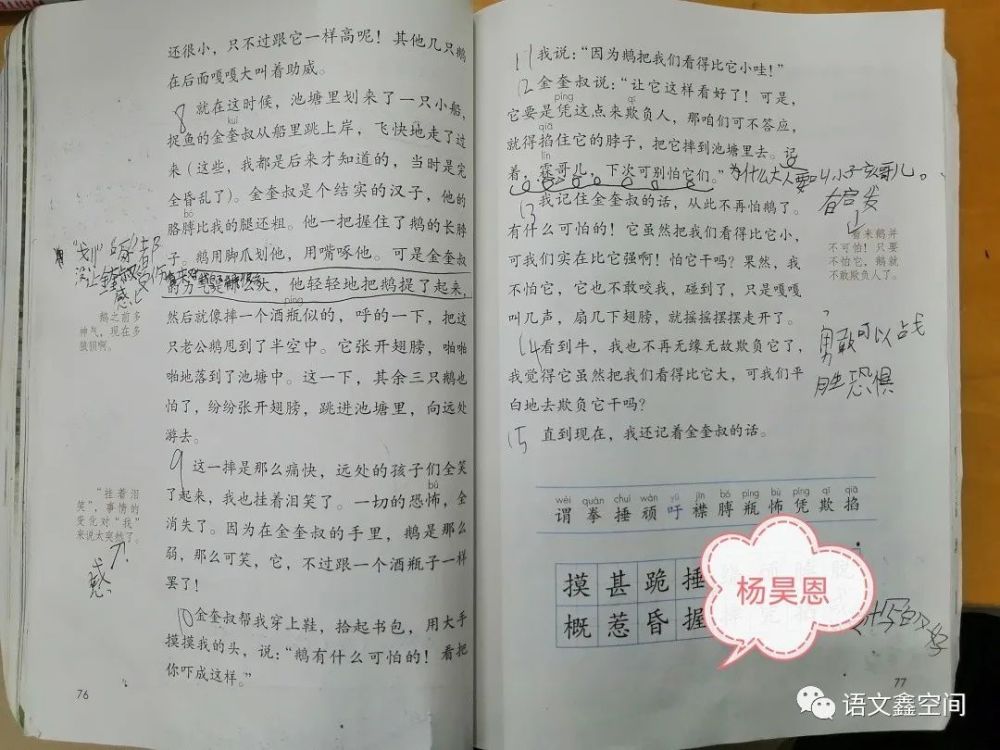 还很小，只不过跟它一样高呢！其他几只鹅
在后面嘎嘎大叫着助威。
8 就在这时候，池塘里划来了一只小船，
kuí
捉鱼的金奎叔从船里跳上岸，飞快地走了过
来（这些，我都是后来才知道的，当时是完
全昏乱了）。金奎叔是个结实的汉子，他的
bó
胳膊比我的腿还粗。他一把握住了鹅的长脖
子。鹅用脚爪划他，用嘴啄他。可是金奎叔
的力气是那么大，他轻轻地把鹅提了起来，
píng
然后就像摔一个酒瓶似的，呼的一下，把这
只老公鹅甩到了半空中。它张开翅膀，啪啪
啪地落到了池塘中。这一下，其余三只鹅也
怕了，纷纷张开翅膀，跳进池塘里，向远处
游去。
9 这一摔是那么痛快，远处的孩子们全笑
bù
了起来，我也挂着泪笑了。一切的恐怖，全
消失了。因为在金奎叔的手里，鹅是那么
弱，那么可笑，它，不过跟一个酒瓶子一样
罢了！
10 金奎叔帮我穿上鞋，拾起书包，用大手
摸摸我的头，说：“鹅有什么可怕的！看把
你吓成这样。”
“划”“啄”都
没让金奎叔受伤
感
鹅之前多
神气，现在多
狼狈啊。
“挂着泪
笑”，事情的
变化对“我”
来说太突然了。
感
76
11 我说：“因为鹅把我们看得比它小哇！”
12 金奎叔说：“让它这样看好了！可是，
píng qī
它要是凭这点来欺负人，那咱们可不答应，
qiā
就得掐住它的脖子，把它摔到池塘里去。记
lín
着，霖哥儿，下次可别怕它们。”
为什么大人要叫小孩哥儿。
13 我记住金奎叔的话，从此不再怕鹅了。
有什么可怕的！它虽然把我们看得比它小，
可我们实在比它强啊！怕它干吗？果然，我
不怕它，它也不敢咬我，碰到了，只是嘎嘎
叫几声，扇几下翅膀，就摇摇摆摆走开了。
14 看到牛，我也不再无缘无故欺负它了，
我觉得它虽然把我们看得比它大，可我们平
白地去欺负它干吗？
15 直到现在，我还记着金奎叔的话。
有启发
看来鹅并
不可怕！只要
不怕它，鹅就
不敢欺负人了。
勇敢可以战
胜恐惧
wèi quán chuí wán yū jīn bó píng bù píng qī qiā
谓 拳 捶 顽 吁 襟 膊 瓶 怖 凭 欺 掐
摸 甚 跪 捶
概 惹 昏 握
杨昊恩
77
语文鑫空间